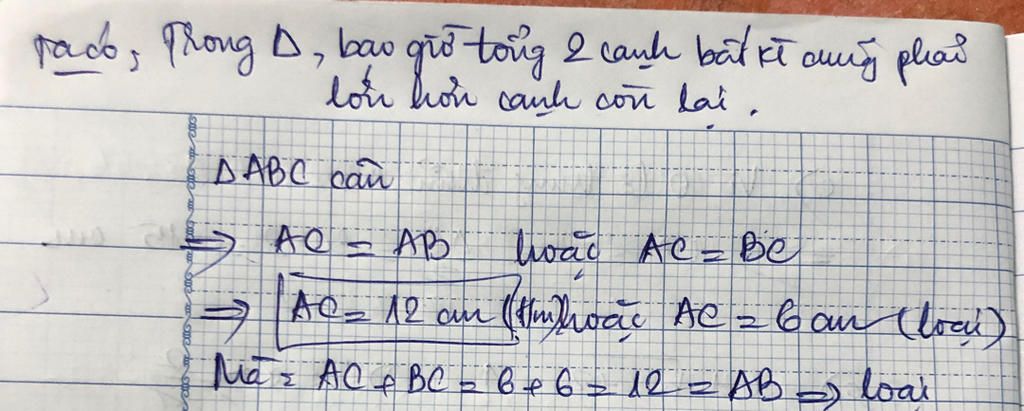 Ta có, Trong Δ, bao giờ tổng 2 cạnh bất kì cũng phải
lớn hơn cạnh còn lại.
ΔABC cân
=> AC = AB hoặc AC = BC
=> AC = 12 cm (tm) hoặc AC = 6 cm (loại)
Mà: AC + BC = 6 + 6 = 12 = AB => loại